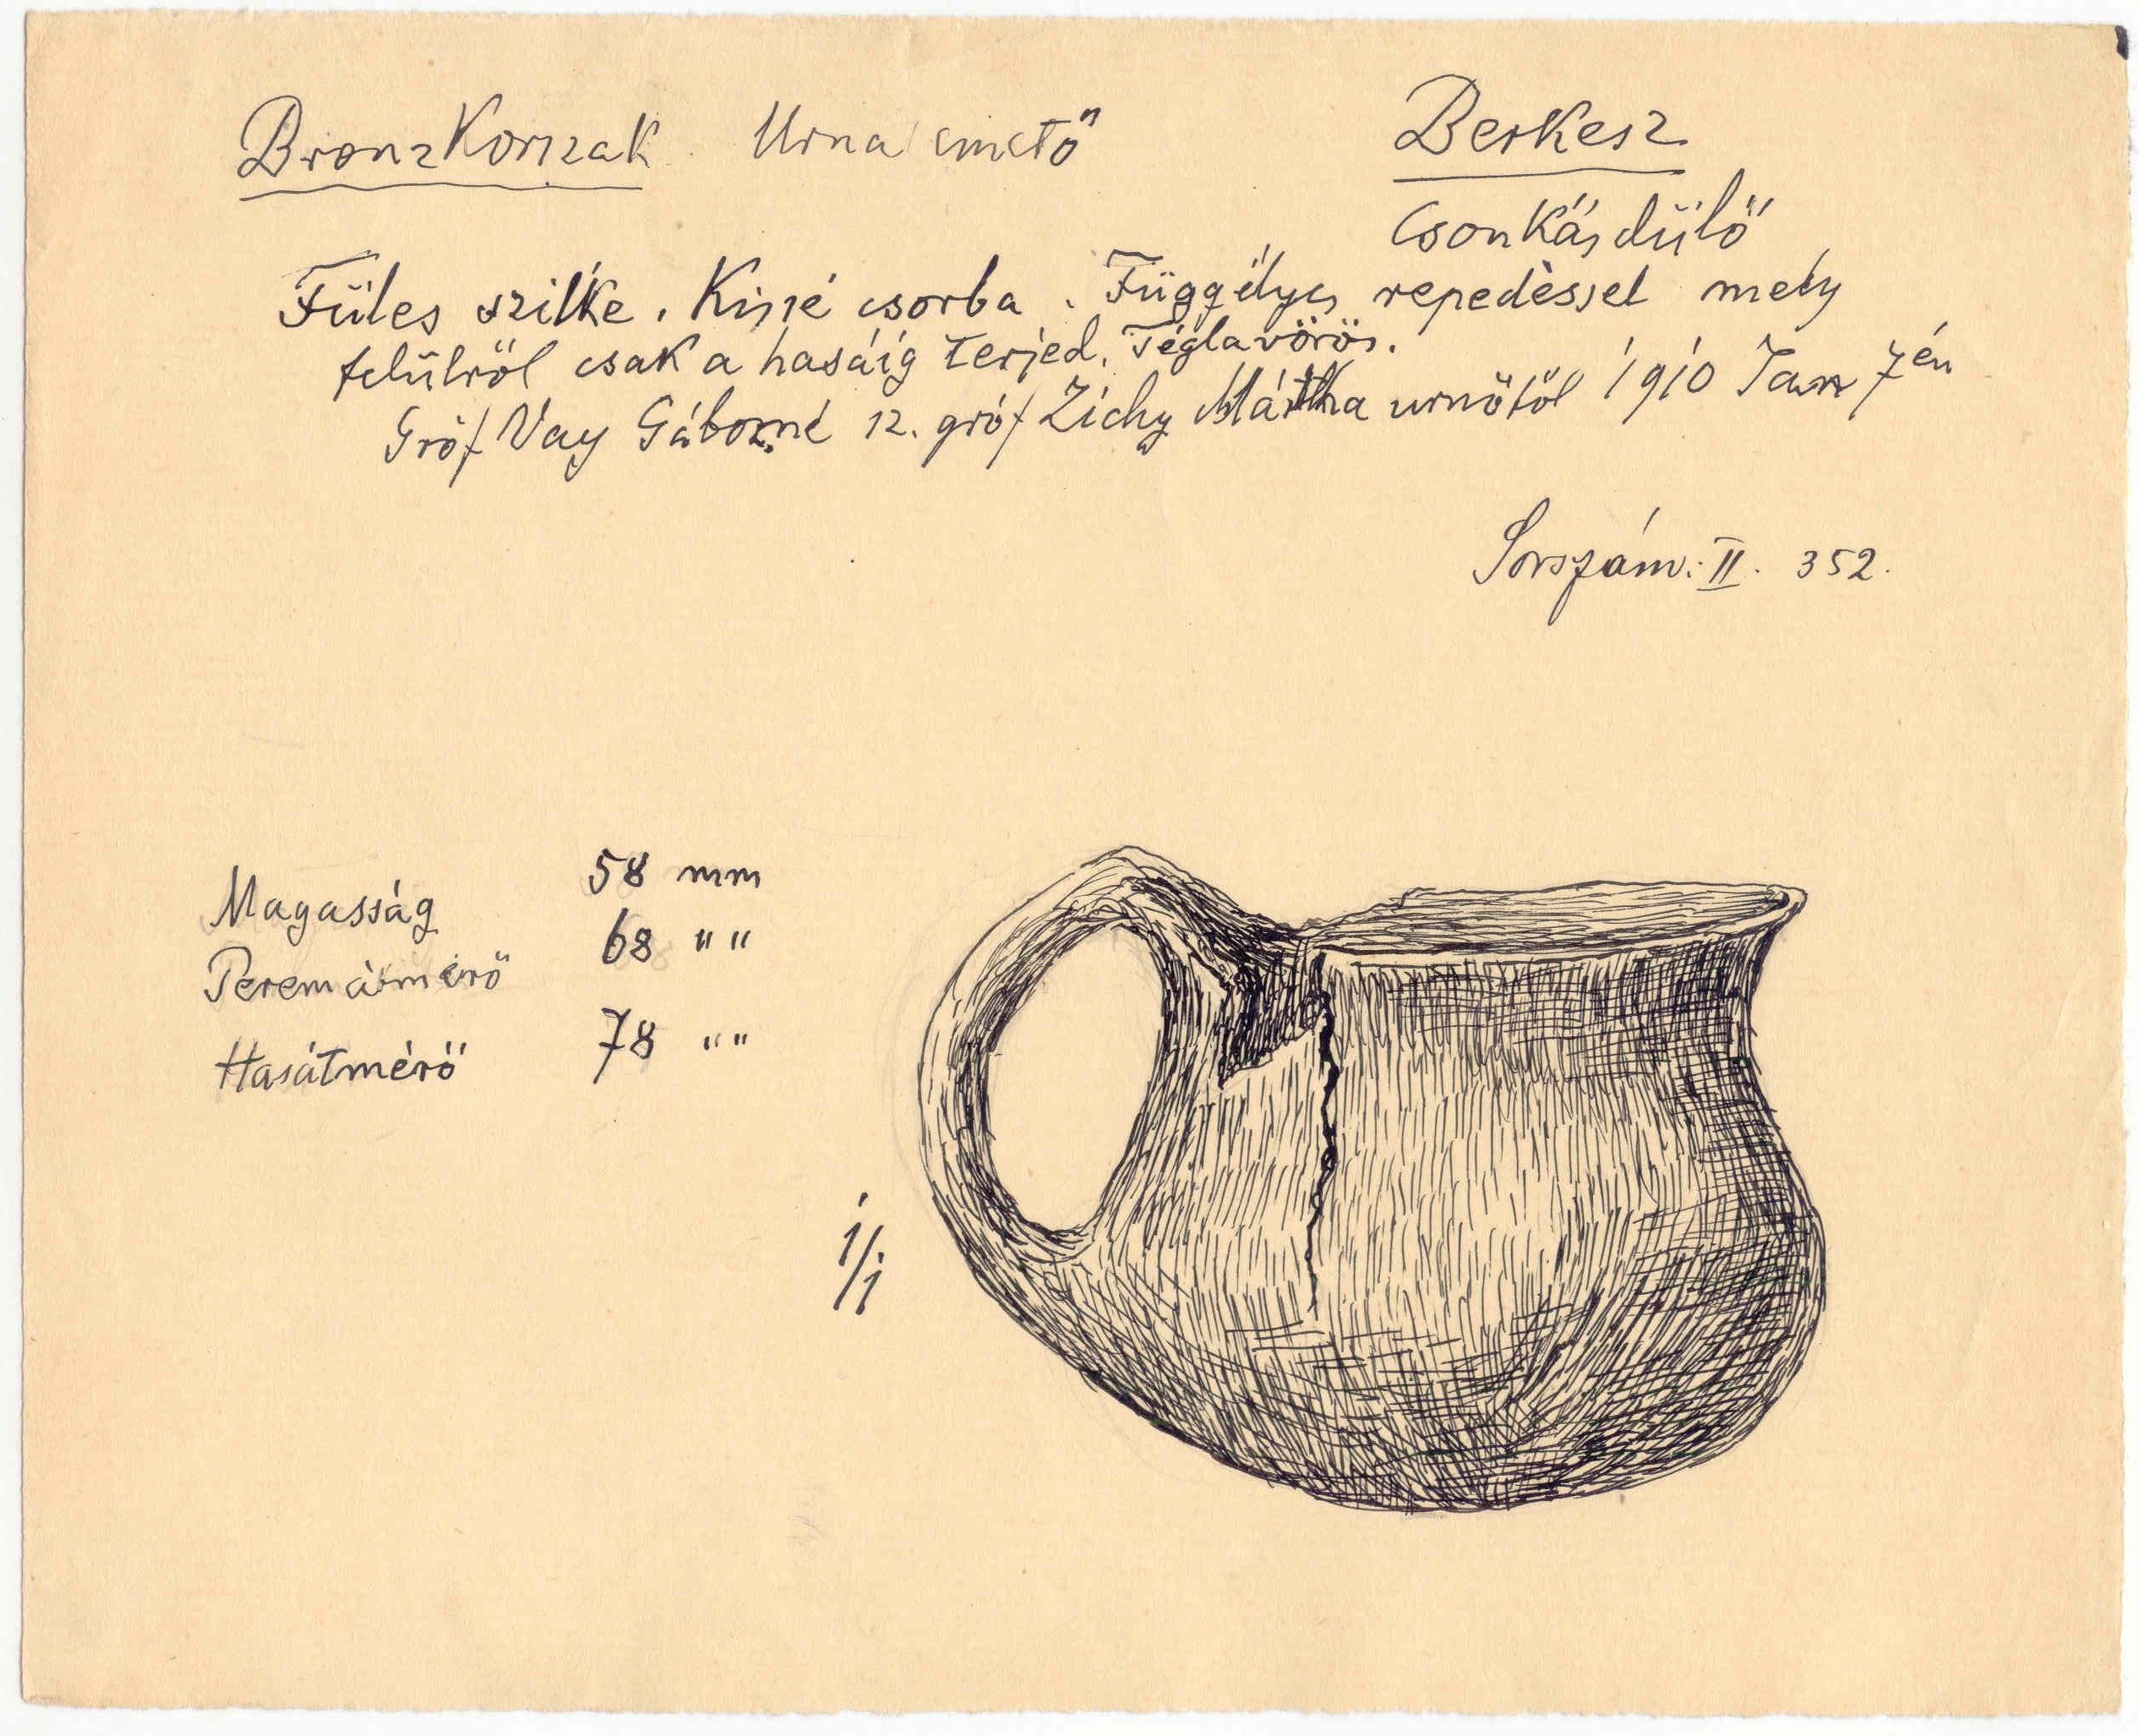 Bronzkorszak Urna Berkesz
Csonkás dülő
Füles szilke. Kissé csorba. Függélyes repedéssel mely
felülről csak a hasáig terjed. Téglavörös.
Gróf Vay Gáborné gróf Zichy Mártha urnőtől 1910 Jan 7én
Sorszám: II. 352.
Magasság 58 mm
Peremátmérő 68 " "
Hasátmérő 78 " "
1/1